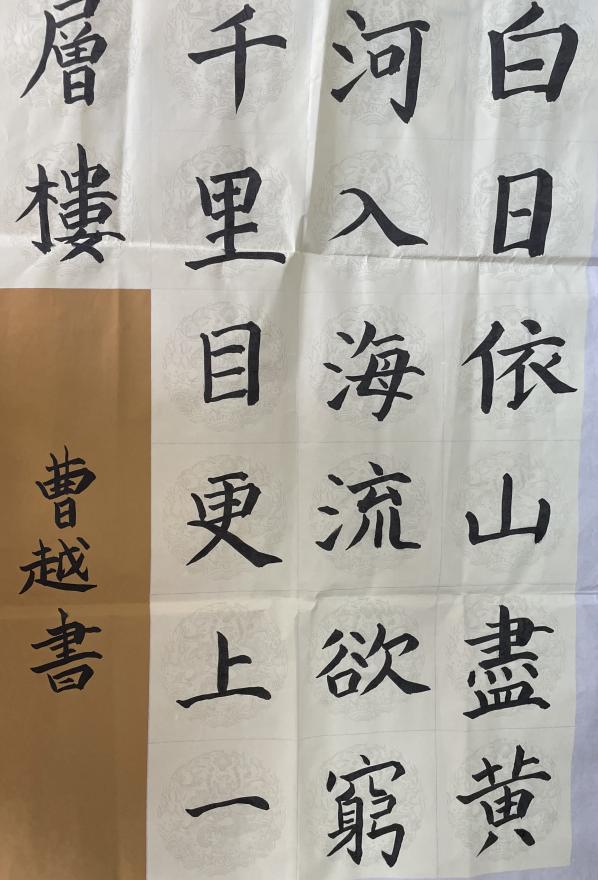 白日依山盡黄
河入海流欲窮
千里目更上一
層樓
曹越書